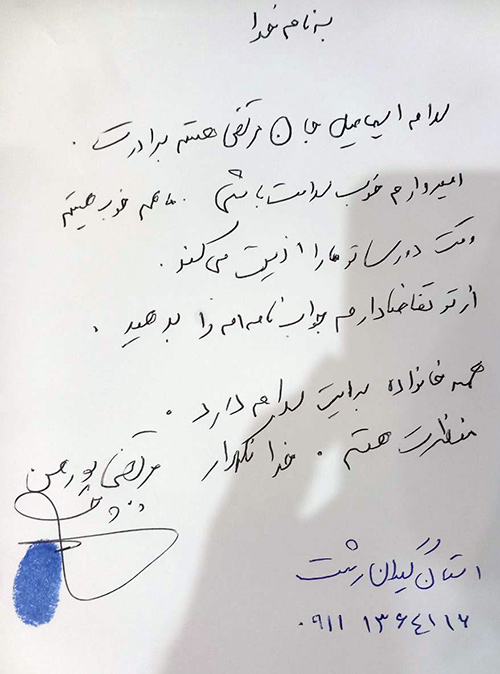 به نام خدا
سلام اسماعیل جان مرتضی هستم برادرت.
امیدوارم خوب سلامت باشی. ما هم خوب هستیم
دوری تو ما را اذیت می کند.
از تو تقاضا دارم جواب نامه ام را بدهید.
همه خانواده برایت سلام دارد.
منتظرت هستم. خدا نگهدار مرتضی پور
استان گیلان رشت
۰۹۱۱ ۱۳۶۴۱۱۶